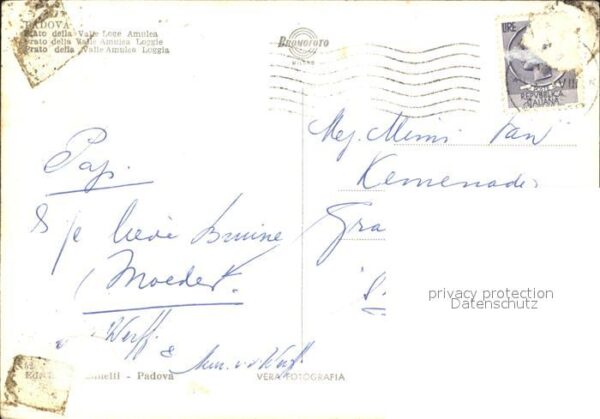 PADOVA
Prato della Valle Loge Amulea
Prato della Valle Amulea Loggie
Prato della Valle Amulea Loggia
Bromofoto
MILANO
LIRE
REPVBBLICA
ITALIANA
Mej. Mimi van
Kemenade
Gra
S.
privacy protection
Datenschutz
Pap.
& je lieve Bruine
Moeder.
v. Werff.
& v. d. Werff.
- Padova
VERA FOTOGRAFIA